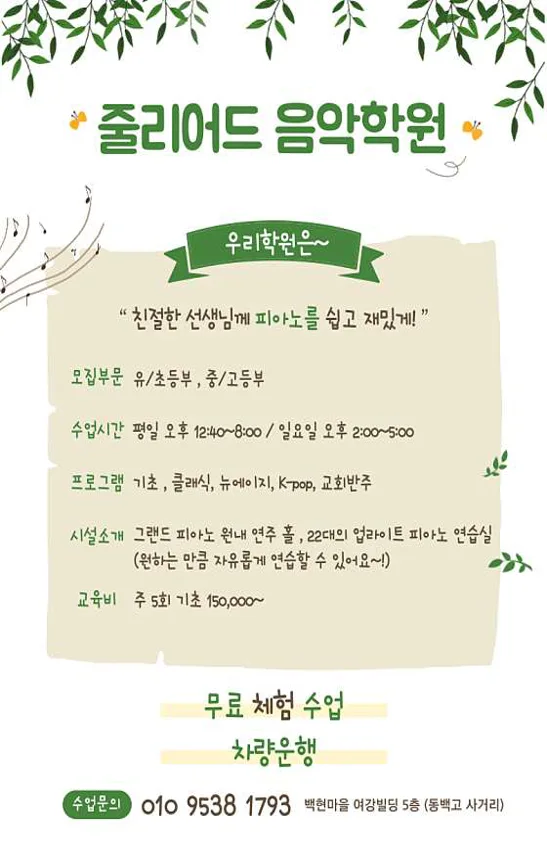 줄리어드 음악학원
우리학원은~
“ 친절한 선생님께 피아노를 쉽고 재밌게! ”
모집부문 유/초등부 , 중/고등부
수업시간 평일 오후 12:40~8:00 / 일요일 오후 2:00~5:00
프로그램 기초 , 클래식, 뉴에이지, K-pop, 교회반주
시설소개 그랜드 피아노 원내 연주 홀 , 22대의 업라이트 피아노 연습실
(원하는 만큼 자유롭게 연습할 수 있어요~!)
교육비 주 5회 기초 150,000~
무료 체험 수업
차량운행
수업문의 010 9538 1793 백현마을 여강빌딩 5층 (동백고 사거리)